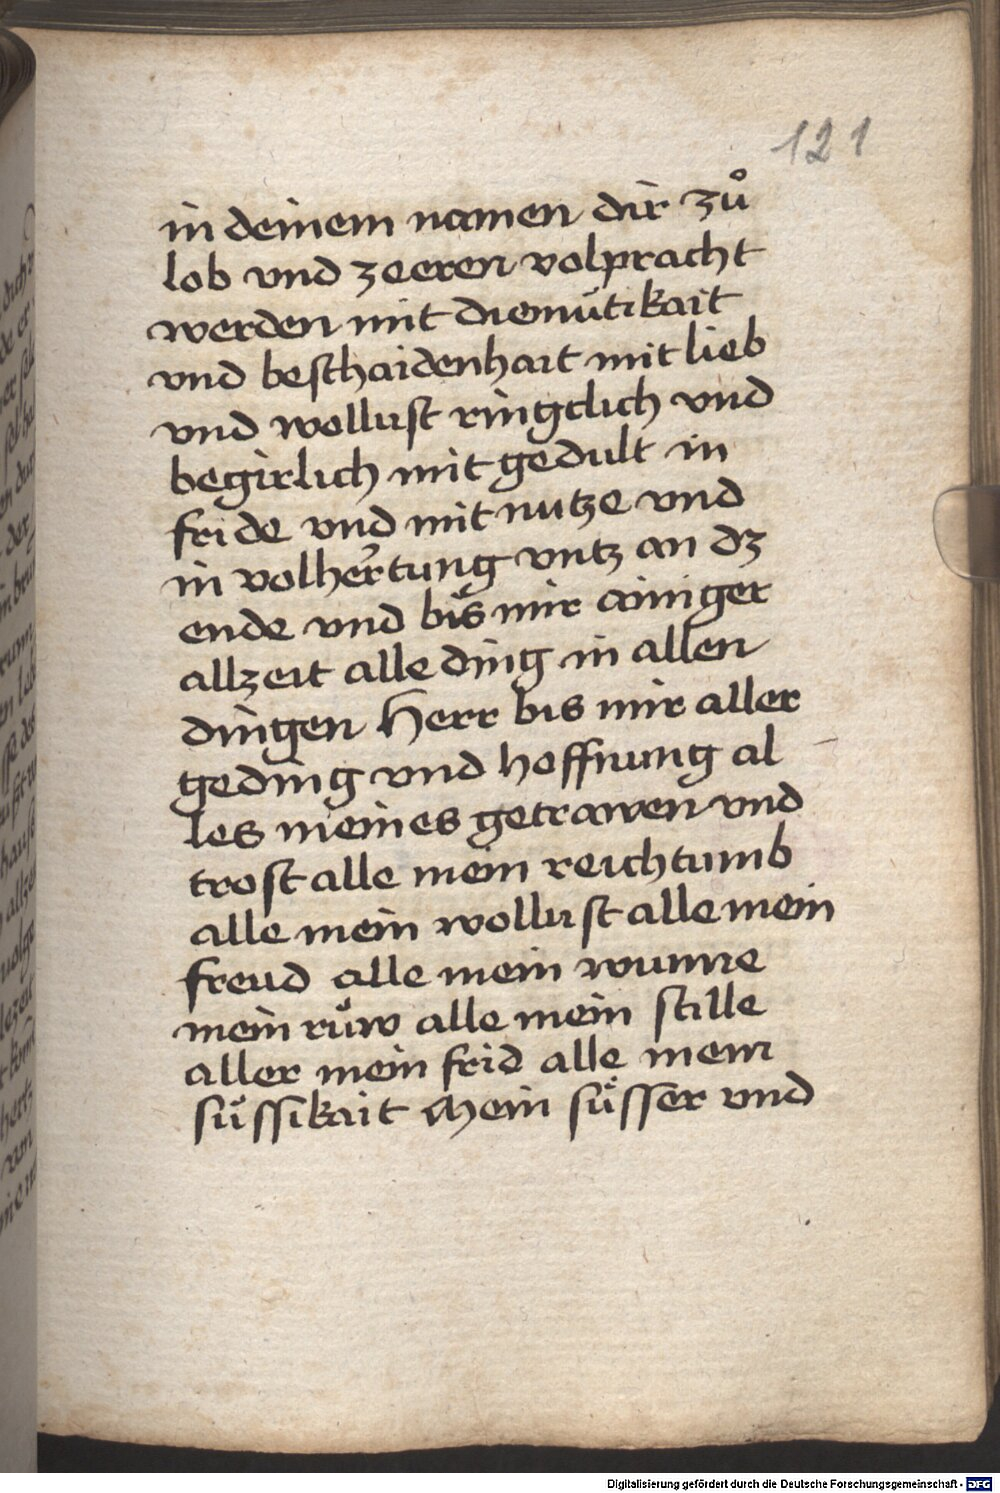 121
in deinem namen dir zuͦ
lob vnd zeeren volpracht
werden mit diemuͤtikait
vnd beschaidenhait mit lieb
vnd wollust ringclich vnd
begirlich mit gedult in
fride vnd mit nutze vnd
in volhertung vntz an dz
ende vnd bis mir ainiger
allzeit alle ding in allen
dingen Herr bis mir aller
geding vnd hoffnung al
les meines getrawen vnd
trost alle mein reichtumb
alle mein wollust alle mein
freud alle mein wunne
mein ruͤw alle mein stille
aller mein frid alle mein
suͤssikait Mein suͤsser vnd
Digitalisierung gefördert durch die Deutsche Forschungsgemeinschaft - DFG